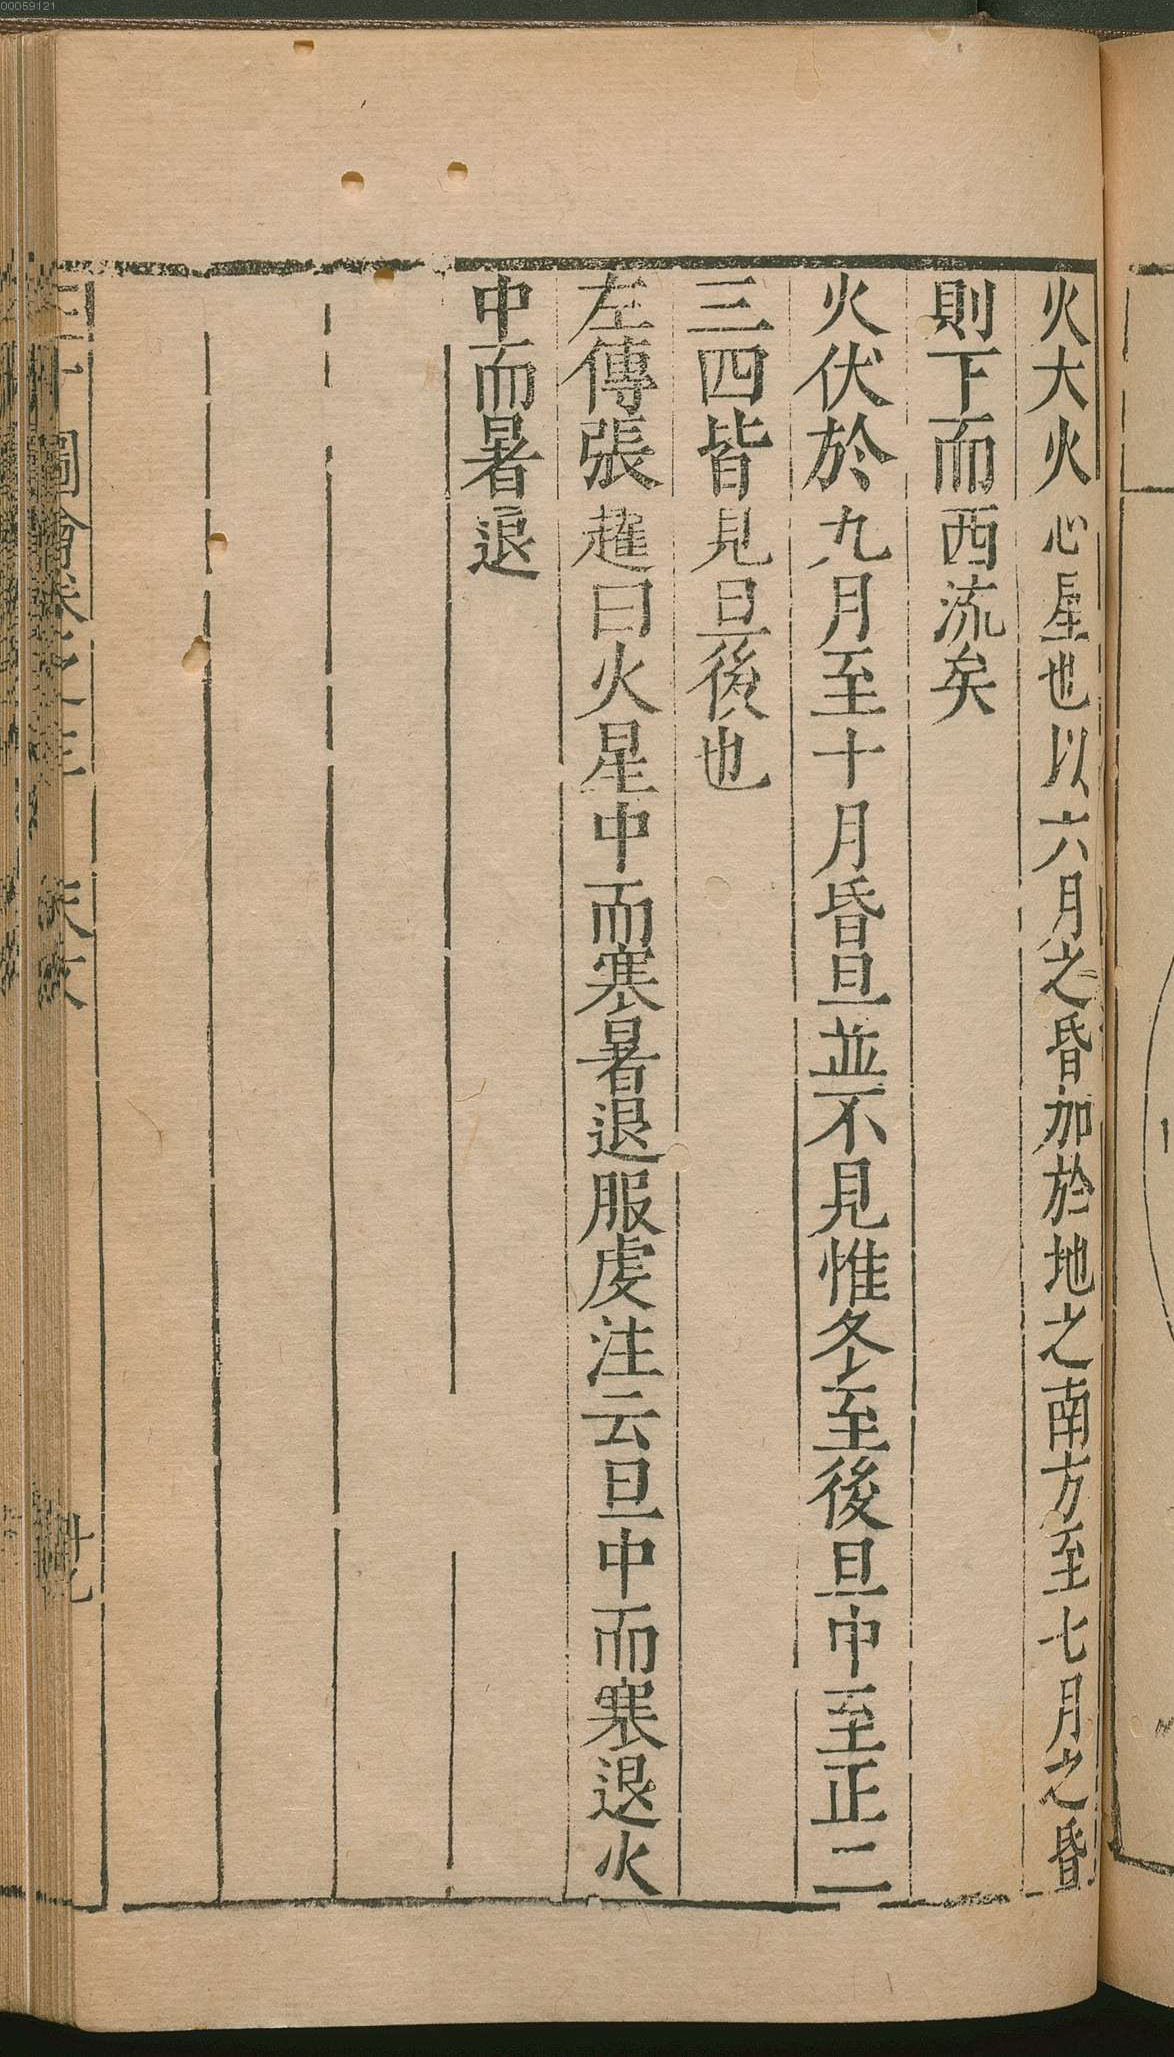 火大火心星也以六月之昏加於地之南方至七月之昏
則下而西流矣
火伏於九月至十月昏旦並不見惟冬至後旦中至正二
三四皆見旦後也
左傳張趯曰火星中而寒暑退服虔注云旦中而寒退火
中而暑退
圖會卷之三 天文 廿九
00059121